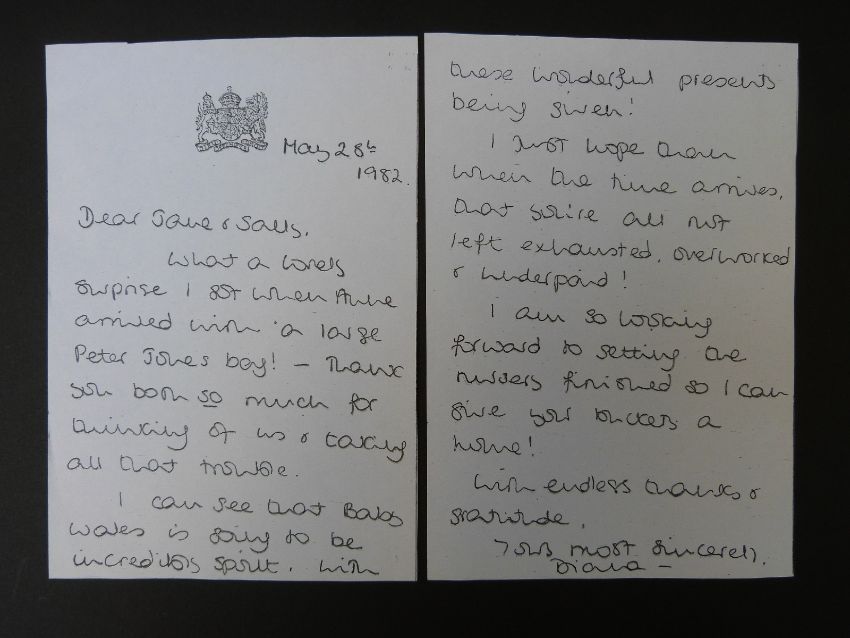 May 28th
1982.
Dear Jane & Sally,
What a lovely
surprise I got when Anne
arrived with a large
Peter Jones bag! – Thank
you both so much for
thinking of us & taking
all that trouble.
I can see that Baby
Wales is going to be
incredibly spoilt, with
these wonderful presents
being given!
I just hope them
when the time arrives,
that you're all not
left exhausted, overworked
& underpaid!
I am so looking
forward to getting the
nursery finished so I can
give your buckets a
home!
With endless thanks &
gratitude,
Yours most sincerely,
Diana –